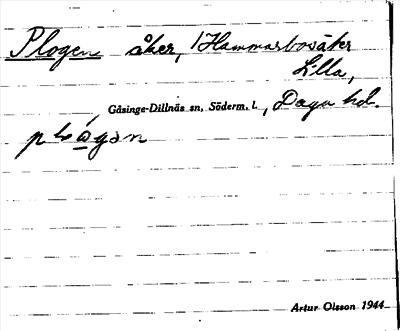 Plogen åker, Hammarbosäter
Lilla,
Gåsinge-Dillnäs sn, Söderm. l., Daga hd.
plógən
Artur Olsson 1944